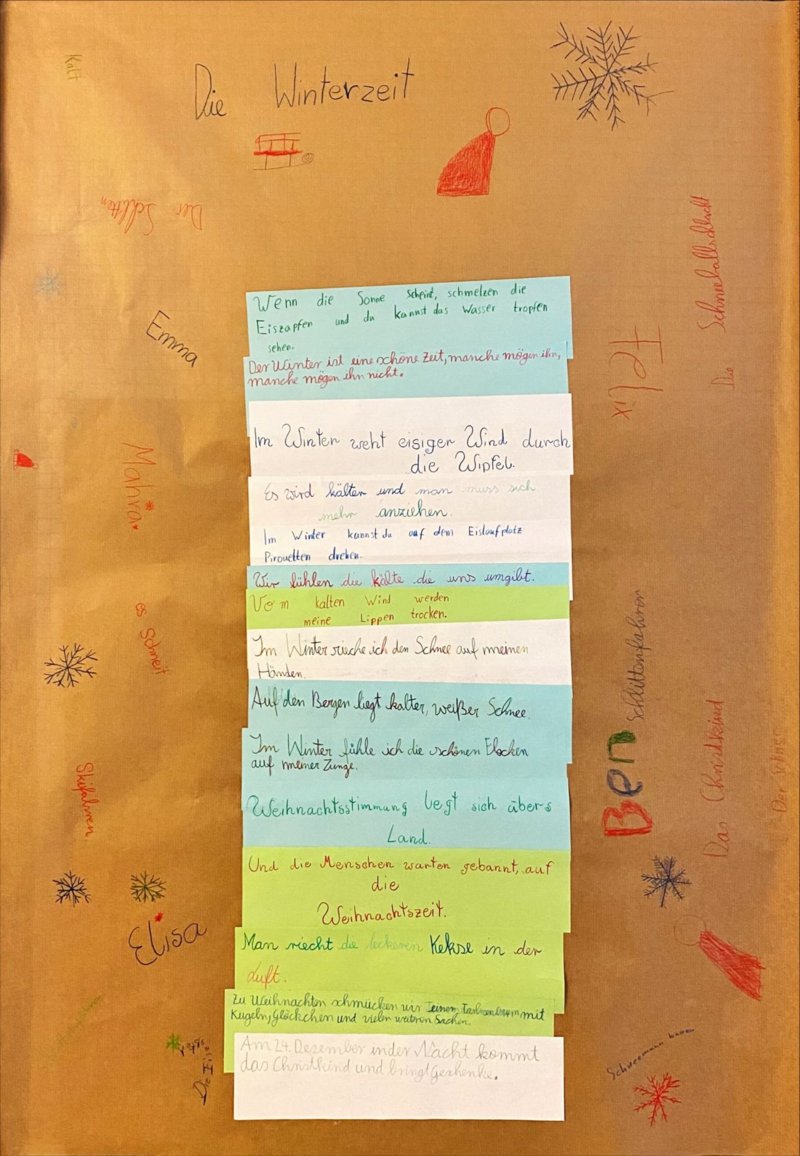 Kalt
Die Winterzeit
Der Schlitten
Die Schneeballschlacht
Emma
Felix
Mahira
es Schneit
Skifahren
Elisa
Ben
Schlittenfahrer
Das Christkind
Schneemann bauen
Wenn die Sonne scheint, schmelzen die
Eiszapfen und du kannst das Wasser tropfen
sehen.
Der Winter ist eine schöne Zeit, manche mögen ihn,
manche mögen ihn nicht.
Im Winter weht eisiger Wind durch
die Wipfel.
Es wird kälter und man muss sich
mehr anziehen.
Im Winter kannst du auf dem Eislaufplatz
Pirouetten drehen.
Wir fühlen die kälte die uns umgibt.
Vom kalten Wind werden
meine Lippen trocken.
Im Winter rieche ich den Schnee auf meinen
Händen.
Auf den Bergen liegt kalter, weißer Schnee.
Im Winter fühle ich die schönen Flocken
auf meiner Zunge.
Weihnachtsstimmung legt sich übers
Land.
Und die Menschen warten gebannt, auf
die
Weihnachtszeit.
Man riecht die leckeren Kekse in der
Luft.
Zu Weihnachten schmücken wir einem Tannenbaum mit
Kugeln, Glöckchen und vielen weiteren Sachen.
Am 24. Dezember in der Nacht kommt
das Christkind und bringt Geschenke.